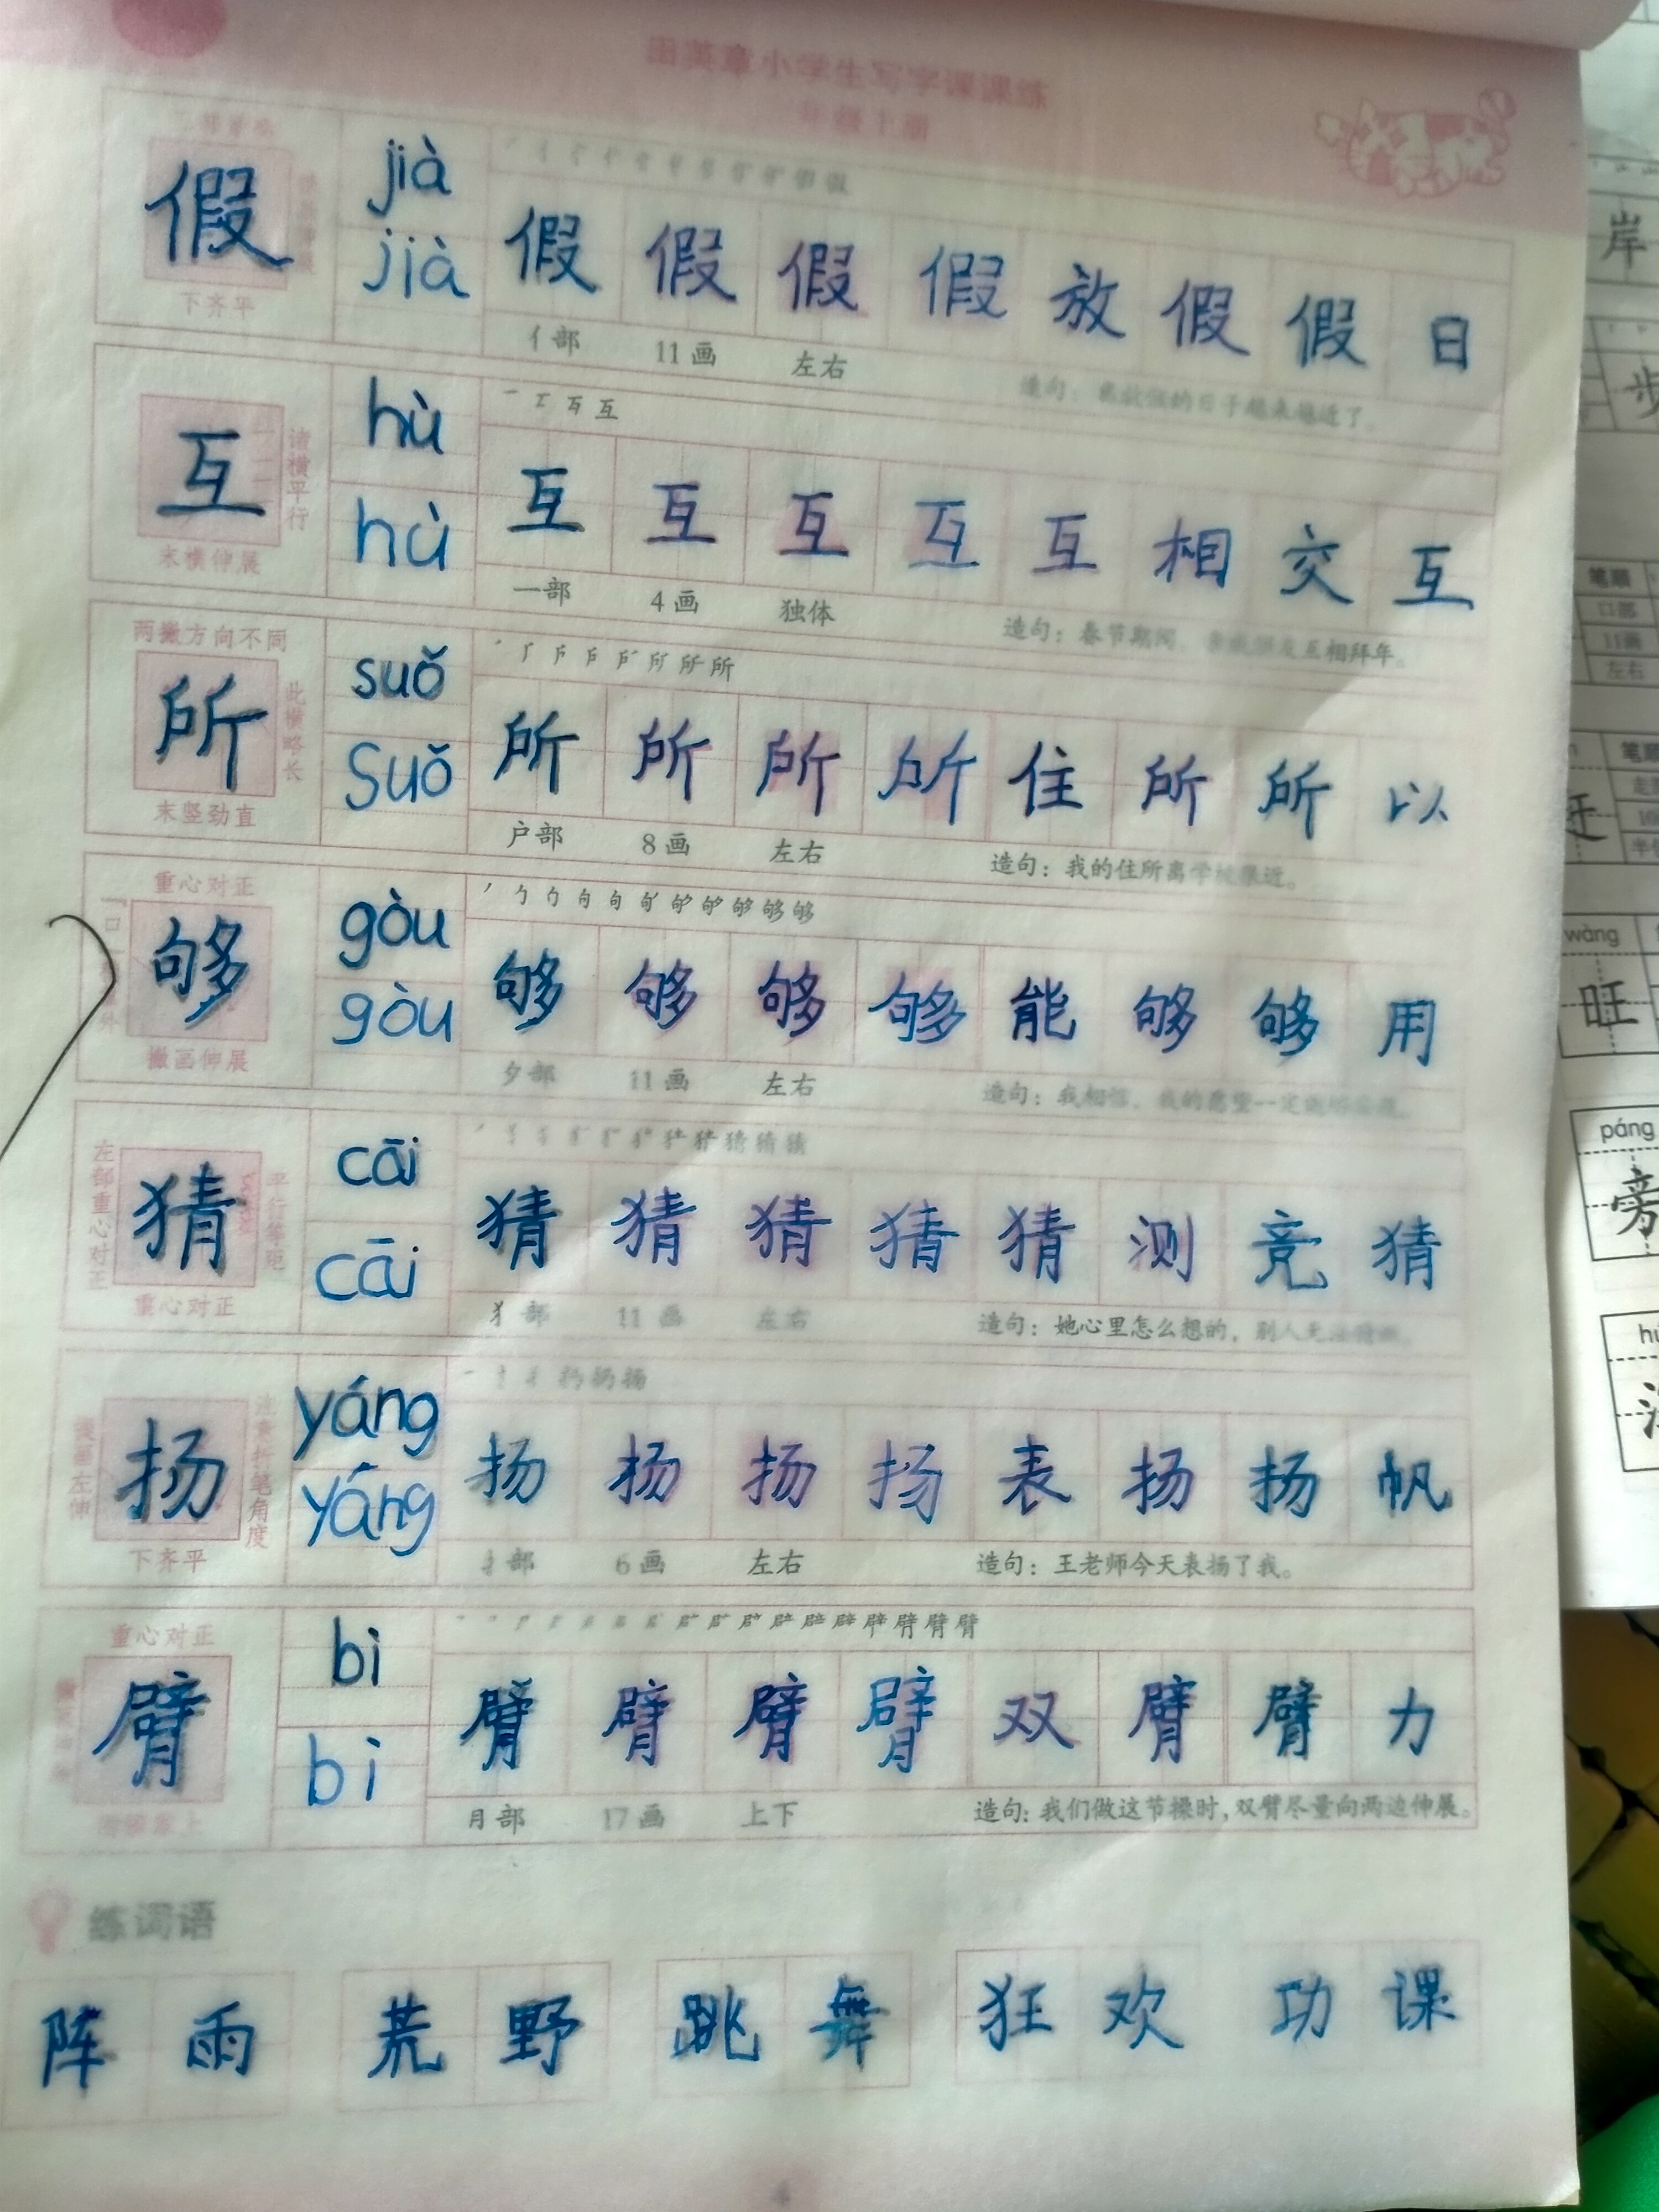 田英章小学生写字课课练
年级上册
假 jià
jià
下齐平
假 假 假 假 放 假 假 日
亻部 11画 左右 造句：我放假的日子越来越近了。
互 hù
hù
诸横平行
末横伸展
一 工 互 互
互 互 互 互 互 相 交 互
一部 4画 独体 造句：春节期间，亲戚朋友互相拜年。
两撇方向不同
所 suǒ
suǒ
此横略长
末竖劲直
所 所 所 所 住 所 所 以
户部 8画 左右 造句：我的住所离学校很近。
重心对正
够 gòu
gòu
撇画伸展
够 够 够 够 能 够 够 用
夕部 11画 左右 造句：我相信，我的愿望一定能够实现。
左部重心对正
猜 cāi
cāi
平行等距
重心对正
猜 猜 猜 猜 猜 测 竞 猜
犭部 11画 左右 造句：她心里怎么想的，别人无法猜测。
扬 yáng
yáng
提画左伸
注意折笔角度
下齐平
扬 扬 扬 扬 表 扬 扬 帆
扌部 6画 左右 造句：王老师今天表扬了我。
重心对正
臂 bì
bì
臂 臂 臂 臂 双 臂 臂 力
月部 17画 上下 造句：我们做这节操时，双臂尽量向两边伸展。
练词语
阵雨 荒野 跳舞 狂欢 功课
4
岸
步
笔顺
口部
11画
左右
笔顺
wàng
旺
páng
旁